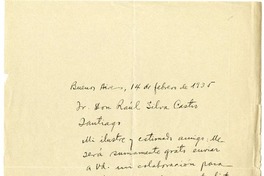 Buenos Aires, 14 de febrero de 1935
Sr. Don Raúl Silva Castro
Santiago
Mi ilustre y estimado amigo: Me
será sumamente grato enviar
a Ud. mi colaboración para